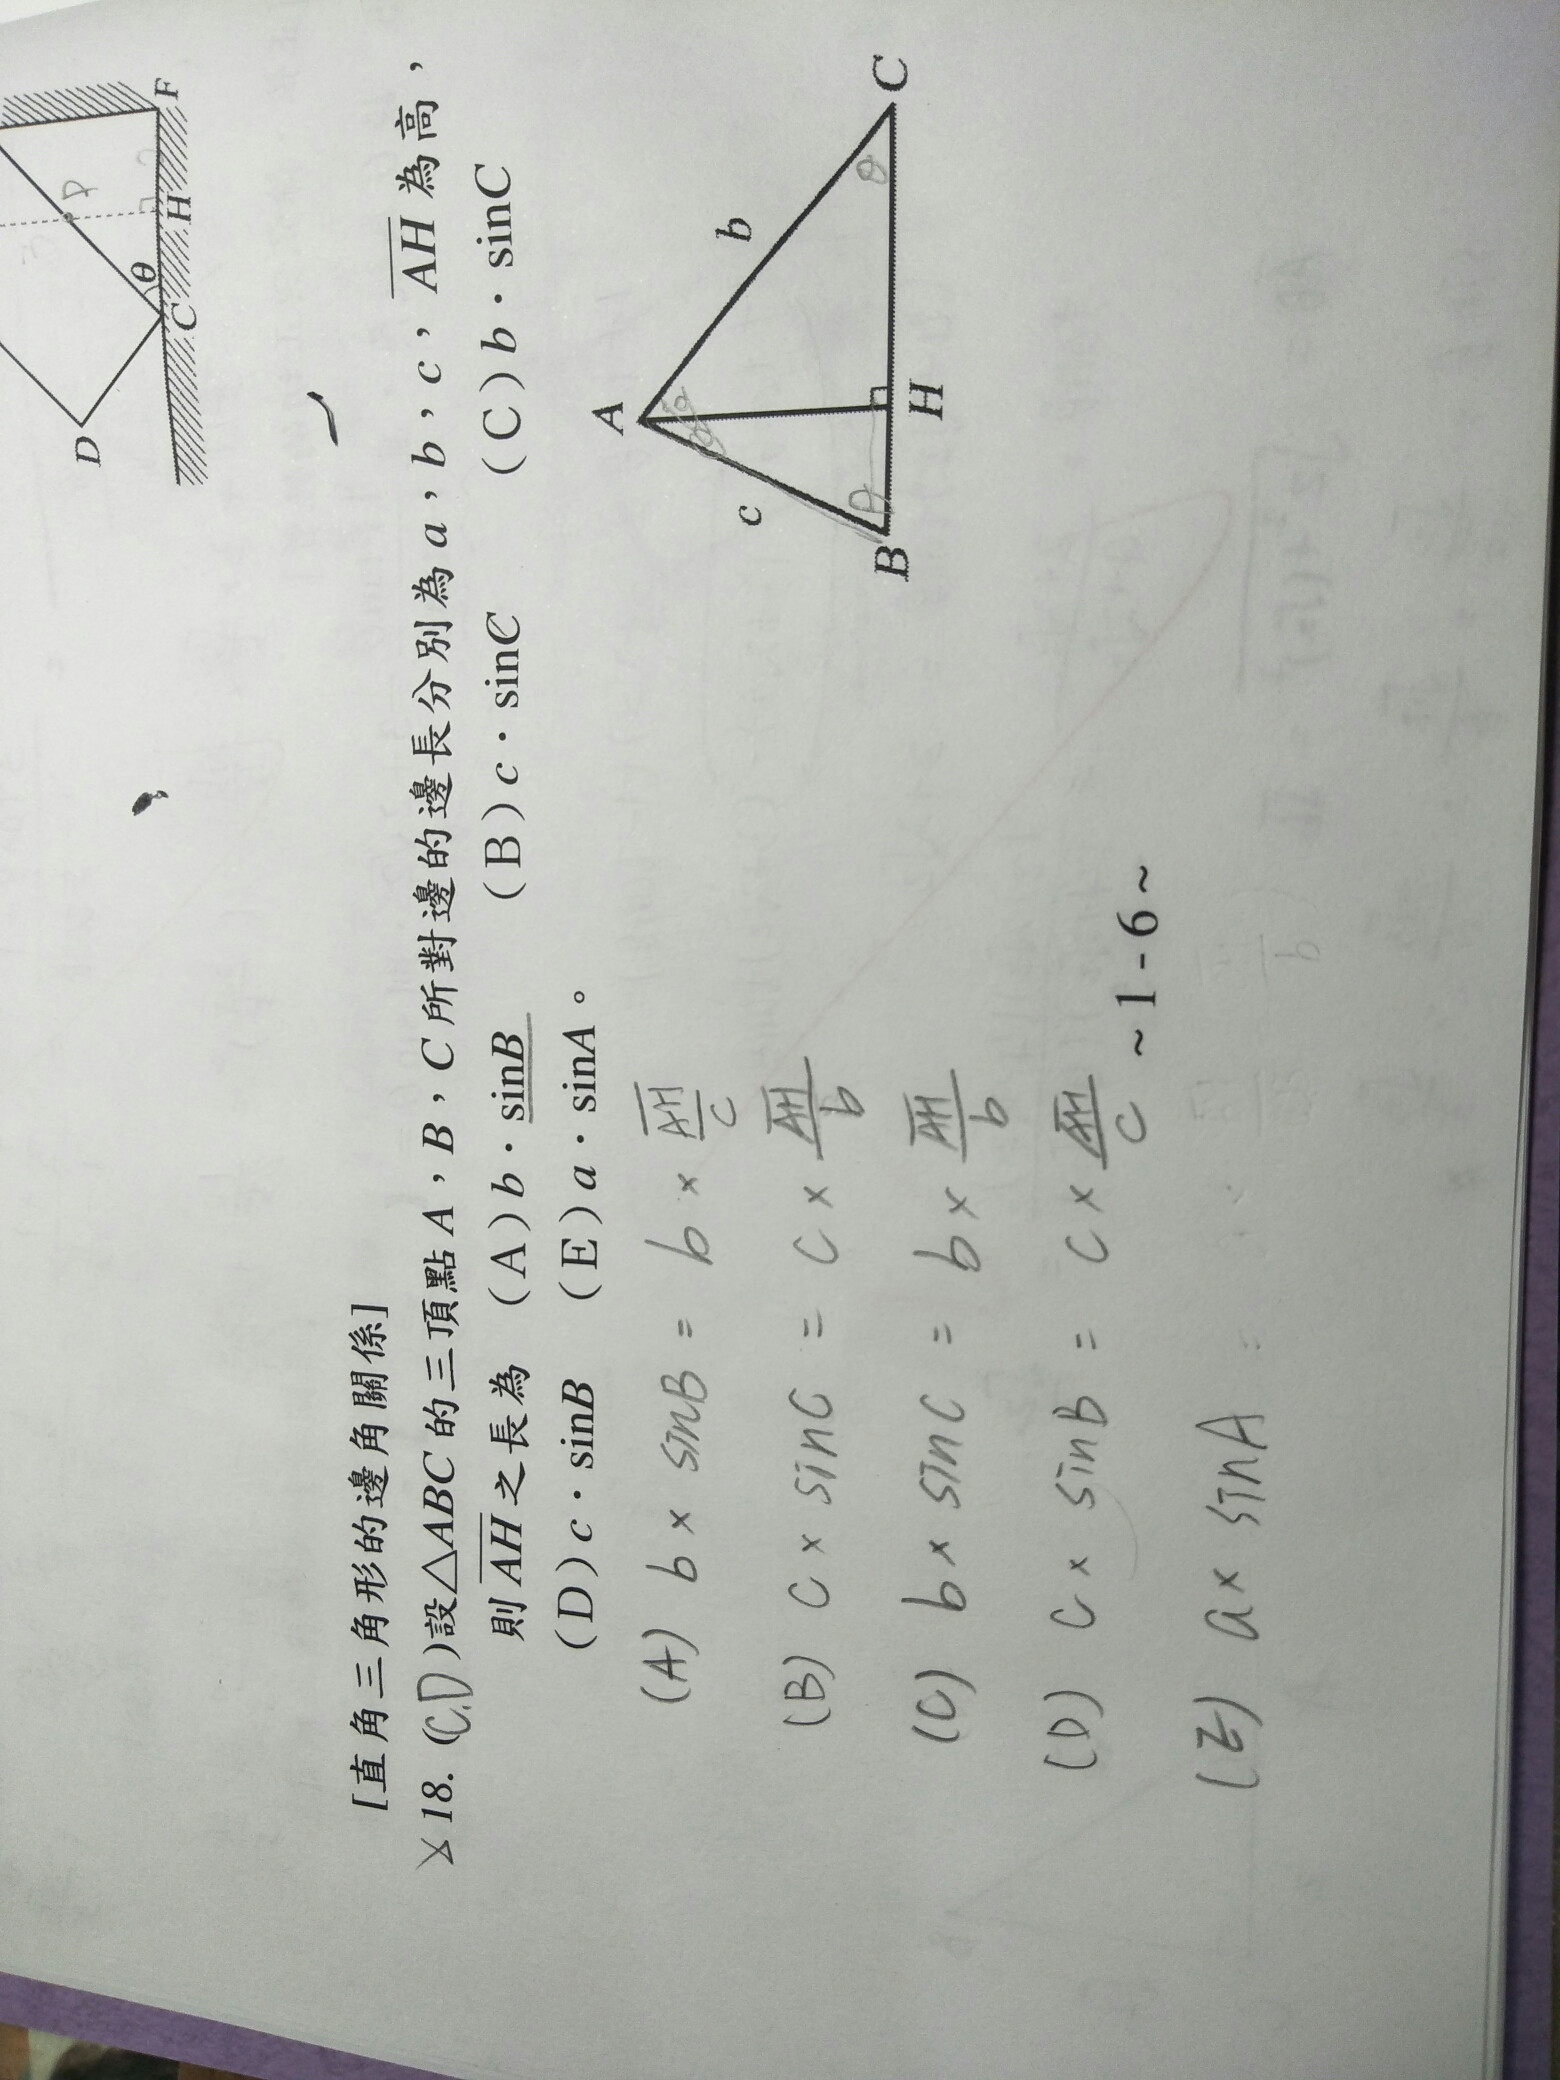 D
θ
C
H
F
[直角三角形的邊角關係]
18. (C,D)設△ABC的三頂點A,B,C所對邊的邊長分別為a,b,c,AH為高,
則AH之長為 (A)b·sinB (B)c·sinC (C)b·sinC
(D)c·sinB (E)a·sinA。
A
c
b
B
H
C
θ
(A) b × sinB = b × AH/c
(B) c × sinC = c × AH/b
(C) b × sinC = b × AH/b
(D) c × sinB = c × AH/c
(E) a × sinA
~1-6~